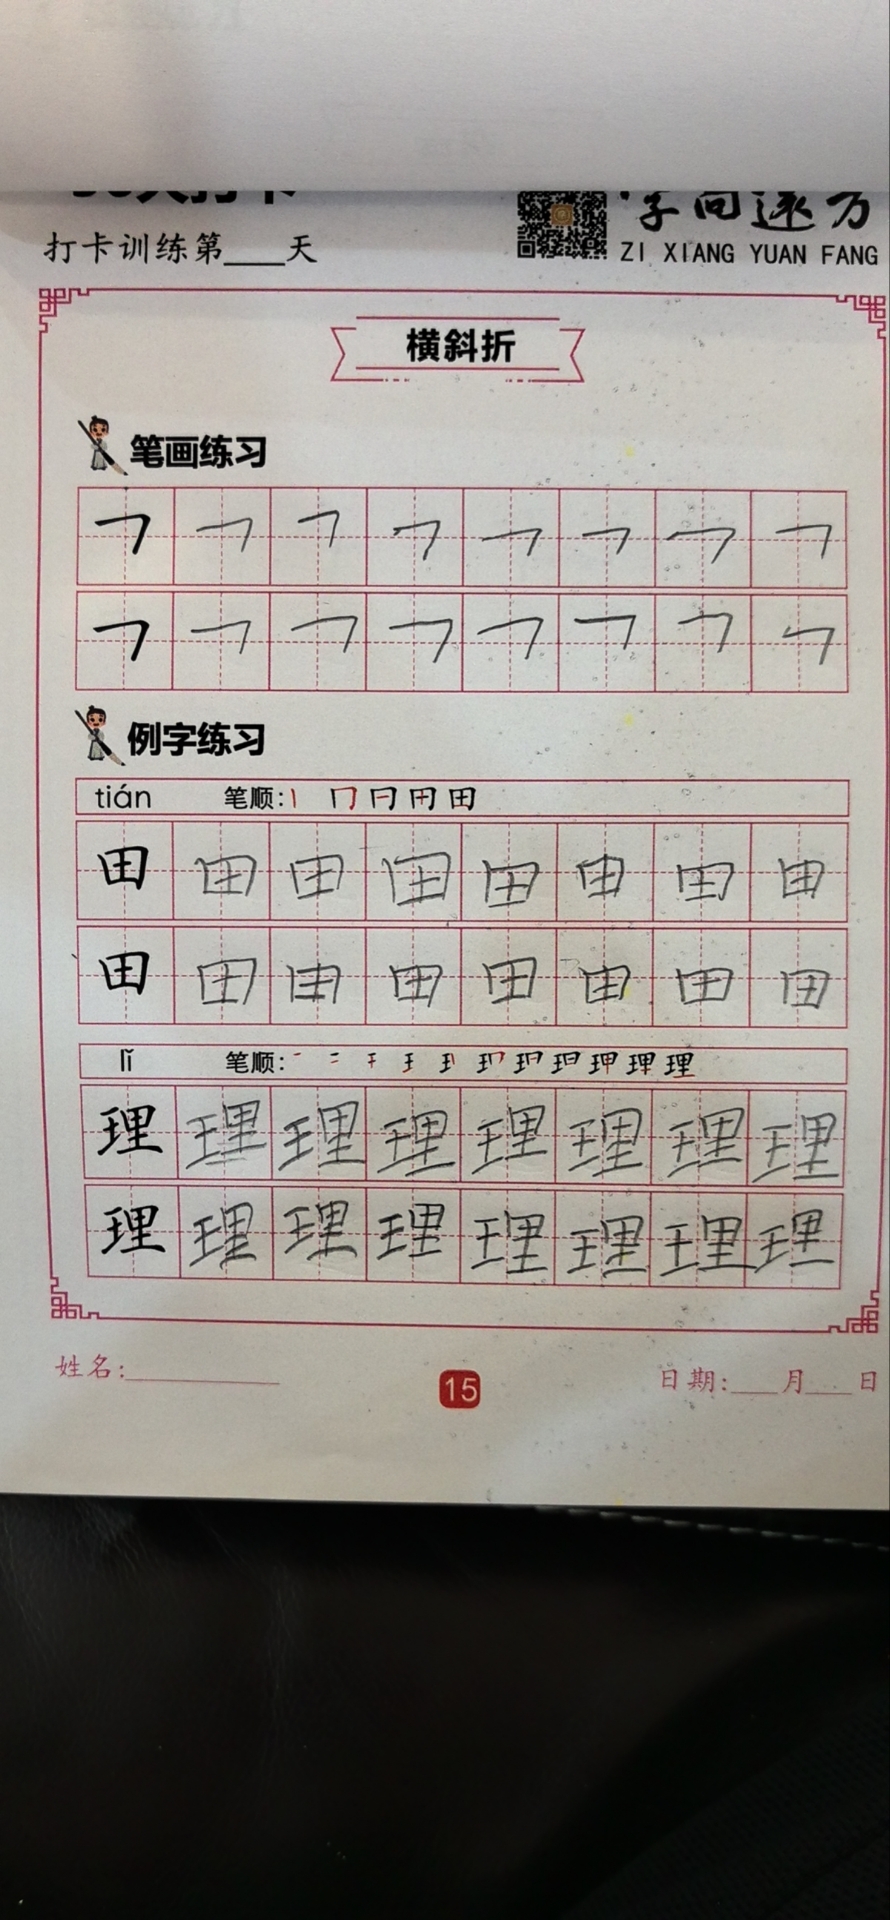 打卡训练第____天
字向远方
ZI XIANG YUAN FANG
横斜折
笔画练习
例字练习
tián 笔顺:
田 田 田 田 田 田 田 田
田 田 田 田 田 田 田 田
lǐ 笔顺:
理 理 理 理 理 理 理 理
理 理 理 理 理 理 理 理
姓名:
15
日期:___月___日